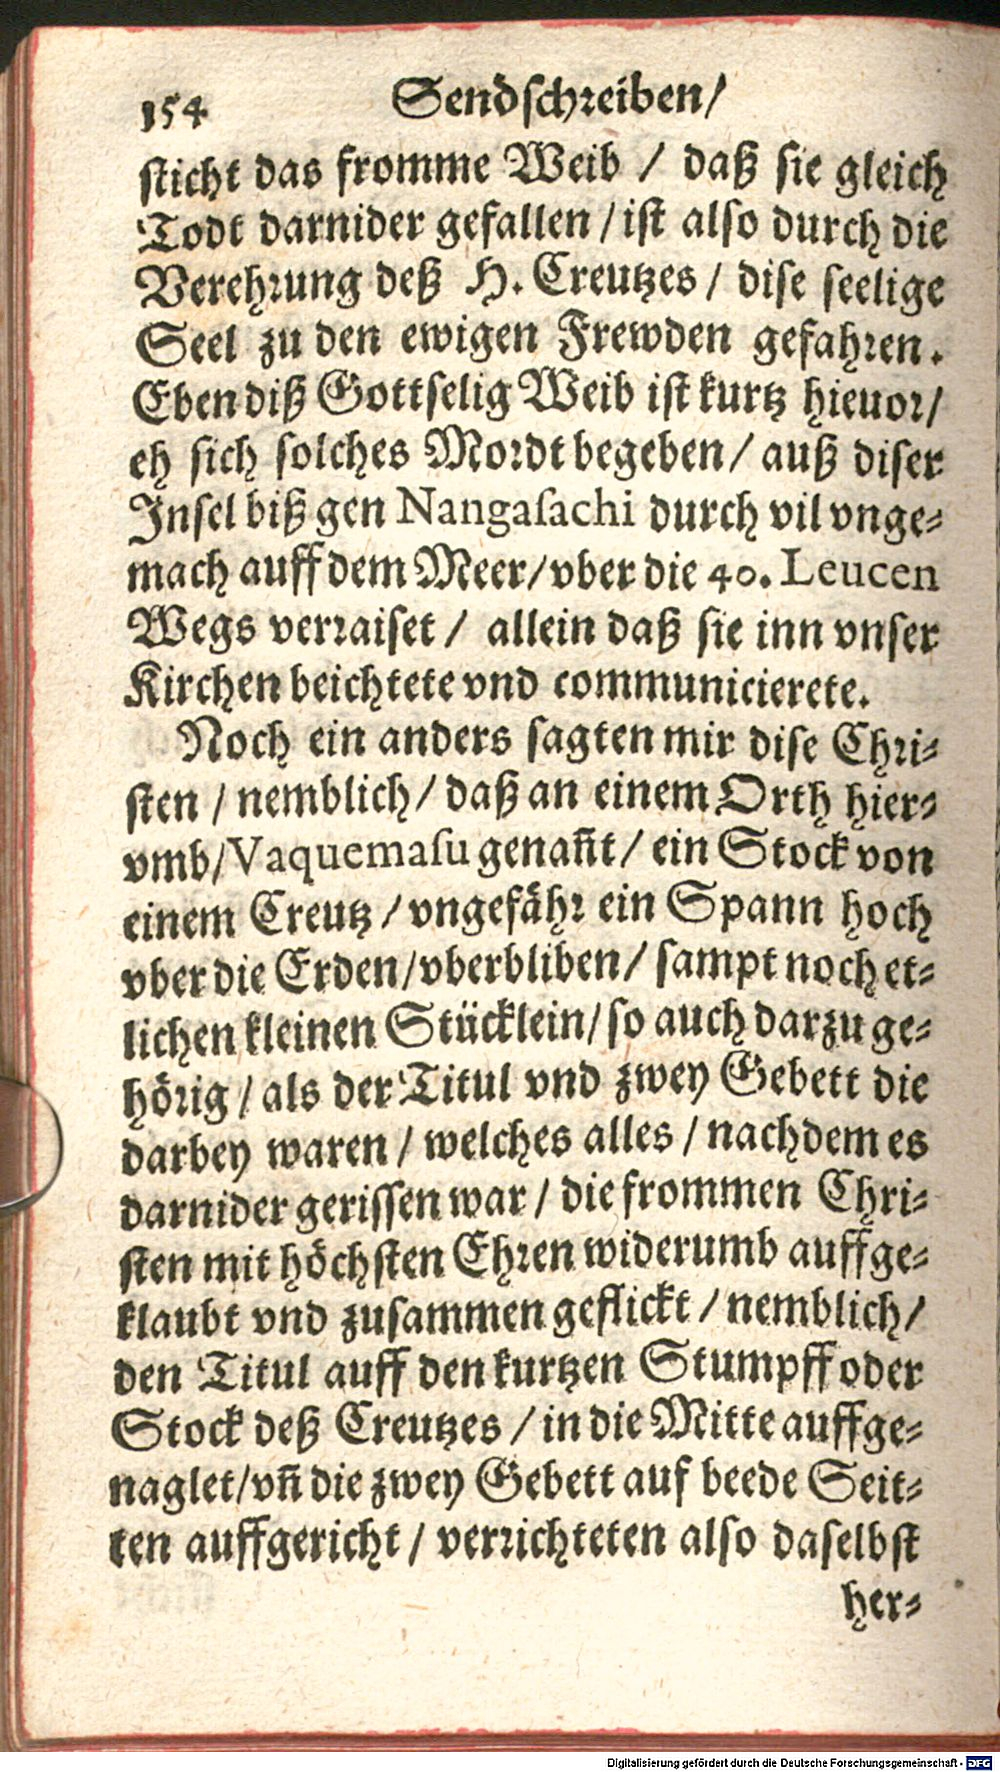 154 Sendschreiben/
sticht das fromme Weib / daß sie gleich
Todt darnider gefallen / ist also durch die
Verehrung deß H. Creutzes / dise seelige
Seel zu den ewigen Frewden gefahren.
Eben diß Gottselig Weib ist kurtz hieuor/
eh sich solches Mordt begeben / auß diser
Insel biß gen Nangasachi durch vil vnge-
mach auff dem Meer/vber die 40. Leucen
Wegs verraiset / allein daß sie inn vnser
Kirchen beichtete vnd communicierete.
Noch ein anders sagten mir dise Chri-
sten / nemblich / daß an einem Orth hier-
vmb/Vaquemasu genañt / ein Stock von
einem Creutz / vngefähr ein Spann hoch
vber die Erden/vberbliben/ sampt noch et-
lichen kleinen Stücklein/so auch darzu ge-
hörig / als der Titul vnd zwey Gebett die
darbey waren / welches alles / nachdem es
darnider gerissen war / die frommen Chri-
sten mit höchsten Ehren widerumb auffge-
klaubt vnd zusammen geflickt / nemblich/
den Titul auff den kurtzen Stumpff oder
Stock deß Creutzes / in die Mitte auffge-
naglet/vñ die zwey Gebett auf beede Seit-
ten auffgericht / verrichteten also daselbst
her-
Digitalisierung gefördert durch die Deutsche Forschungsgemeinschaft - DFG